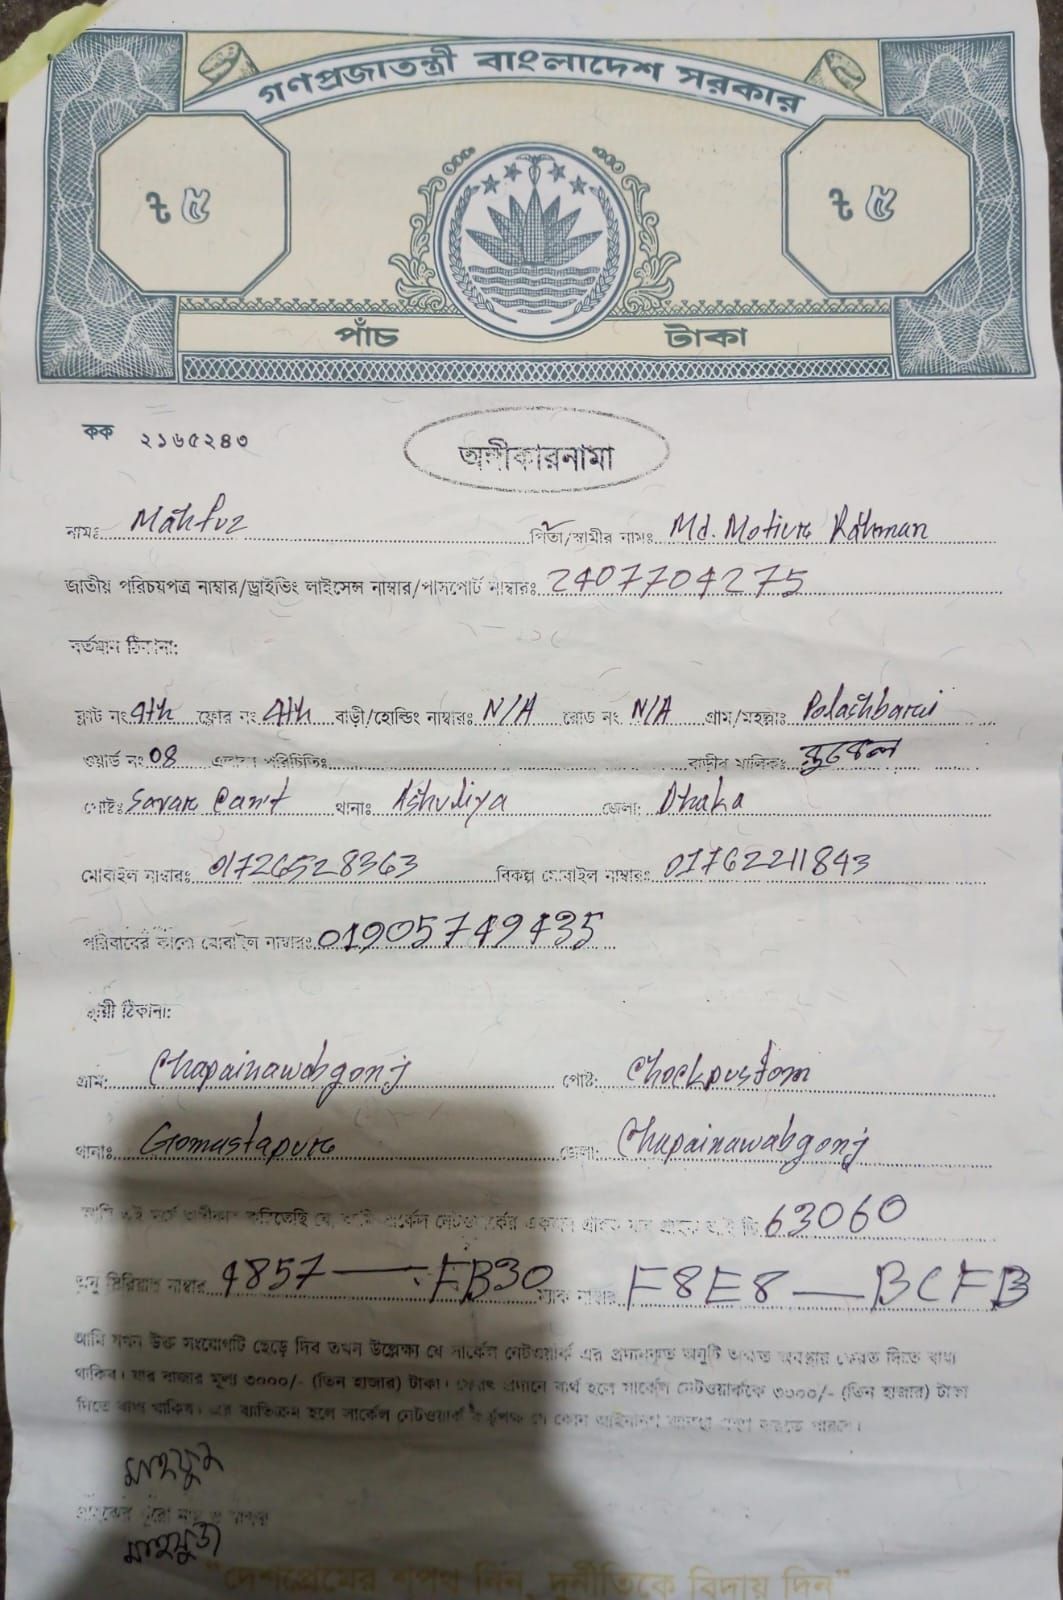 গণপ্রজাতন্ত্রী বাংলাদেশ সরকার
৳ ৫ ৳ ৫
পাঁচ টাকা
কক ২১৬৫২৪৩
অঙ্গীকারনামা
নামঃ Mahfuz পিতা/স্বামীর নামঃ Md. Motiur Rahman
জাতীয় পরিচয়পত্র নাম্বার/ড্রাইভিং লাইসেন্স নাম্বার/পাসপোর্ট নাম্বারঃ 2407704275
বর্তমান ঠিকানা:
ফ্লাট নং 4th ফ্লোর নং 4th বাড়ী/হোল্ডিং নাম্বারঃ N/A রোড নং N/A গ্রাম/মহল্লাঃ Polashbari
ওয়ার্ড নং 08 এলাকা পরিচিতিঃ বাড়ীর মালিকঃ রুবেল
পোষ্টঃ Savar Cant থানাঃ Ashuliya জেলা: Dhaka
মোবাইল নাম্বারঃ 01726528363 বিকল্প মোবাইল নাম্বারঃ 01762211843
পরিবারের কারো মোবাইল নাম্বারঃ 01905749435
স্থায়ী ঠিকানা:
গ্রাম: Chapainawabgonj পোষ্ট: Chockpustom
থানাঃ Gomustapur জেলা: Chapainawabgonj
আমি এই মর্মে অঙ্গীকার করিতেছি যে, আমি সার্কেল নেটওয়ার্কের একজন গ্রাহক যার গ্রাহক আই ডি 63060
অনু সিরিয়াল নাম্বার 4857 — FB30 ম্যাক নাম্বার F8E8 — BCFB
আমি যখন উক্ত সংযোগটি ছেড়ে দিব তখন উল্লেক্ষ্য যে সার্কেল নেটওয়ার্ক এর প্রদানকৃত অনুটি অক্ষত অবস্থায় ফেরত দিতে বাধ্য
থাকিব। যার বাজার মূল্য ৩০০০/- (তিন হাজার) টাকা। ফেরৎ প্রদানে ব্যর্থ হলে সার্কেল নেটওয়ার্ককে ৩০০০/- (তিন হাজার) টাকা
দিতে বাধ্য থাকিব। এর ব্যতিক্রম হলে সার্কেল নেটওয়ার্ক কর্তৃপক্ষ যে কোন আইনানুগ ব্যবস্থা গ্রহণ করতে পারবে।
মাহফুজ
গ্রাহকের পুরো নাম ও স্বাক্ষর
মাহফুজ
"দেশপ্রেমের শপথ নিন, দুর্নীতিকে বিদায় দিন"